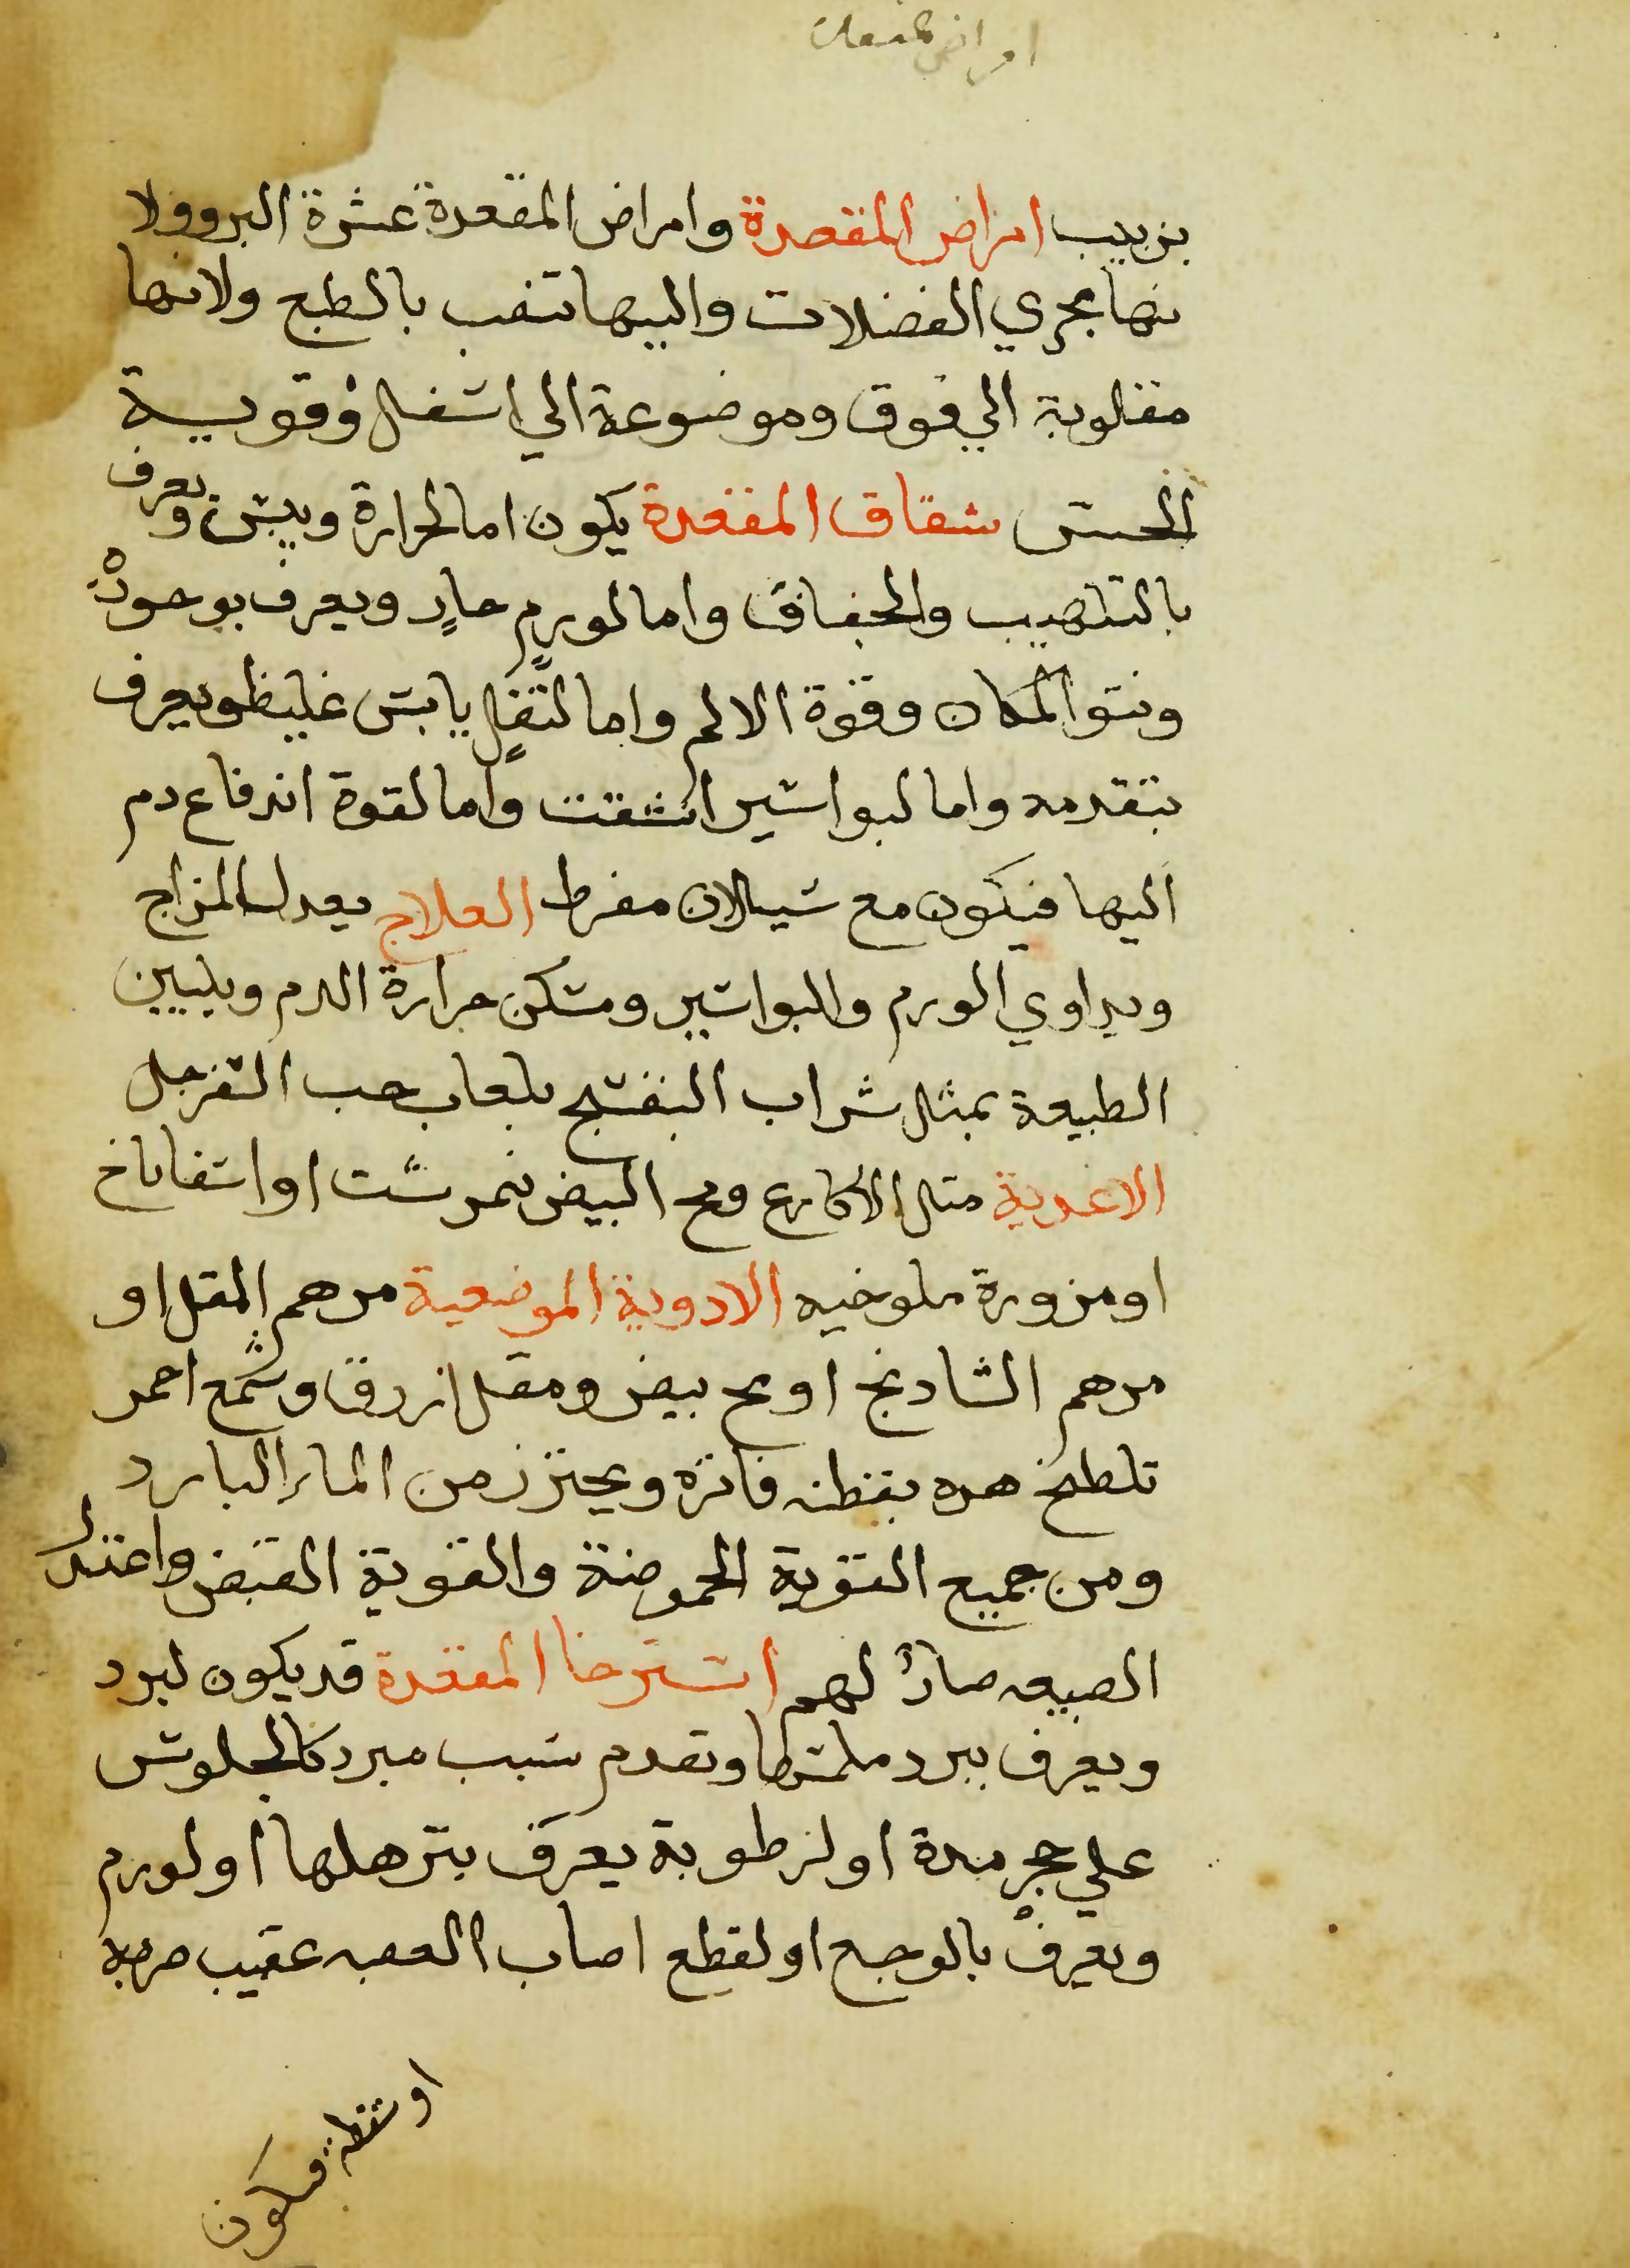 امراض المقعدة
بزبيب امراض المقصدة وامراض المقعدة عشرة البروولا
نها مجري الفضلات واليها تنصب بالطبع ولانها
مقلوبة الي فوق وموضوعة الي اسفل وقوية
الحس شقاق المقعدة يكون اما لحرارة ويبس ويعرف
بالتلهيب والجفاف واما لورم حار ويعرف بوجوده
ونتو المكان وقوة الالم واما لثفل يابس غليظ ويعرف
بتقدمه واما لبواسير انشقت واما لقوة اندفاع دم
اليها فيكون مع سيلان مفرط العلاج يعدل المزاج
ويداوي الورم والبواسير ومسكن حرارة الدم ويليين
الطبيعة بمثل شراب البنفسج بلعاب حب السفرجل
الاغدية متل الاكارع ومح البيض نمرشت او اسفاناخ
او مزورة ملوخيه الادوية الموضعية مرهم المقل او
مرهم الشادنج او مح بيض ومقل ازرق وشمع احمر
تلطخ هده بقطنه فاتره ويحترز من الماء البارد
ومن جميع القوية الحموضة والقوية القبض واعتدال
الصبيعه ضار لهم استرخا المقعدة قد يكون لبرد
ويعرف ببرد ملمسها وتقدم سبب مبرد كالجلوس
علي حجر مدة او لرطوبة يعرف بترهلها او لورم
ويعرف بالوجع او لقطع اصاب العصبه عقيب ضربة
او سقطه فيكون